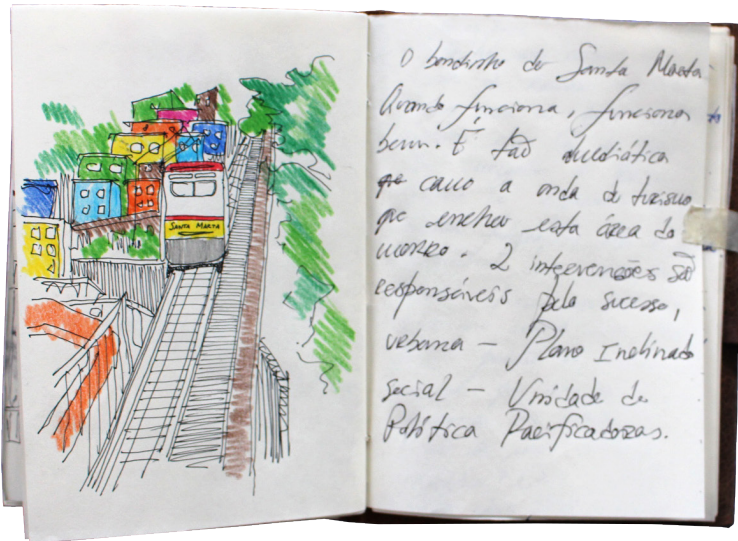 SANTA MARTA
O bondinho do Santa Marta
Quando funciona, funciona
bem. É tão midiática
que como a onda de turismo
que encheu esta área do
morro. 2 intervenções são
responsáveis pelo sucesso,
urbana — Plano Inclinado
social — Unidade de
Política Pacificadoras.